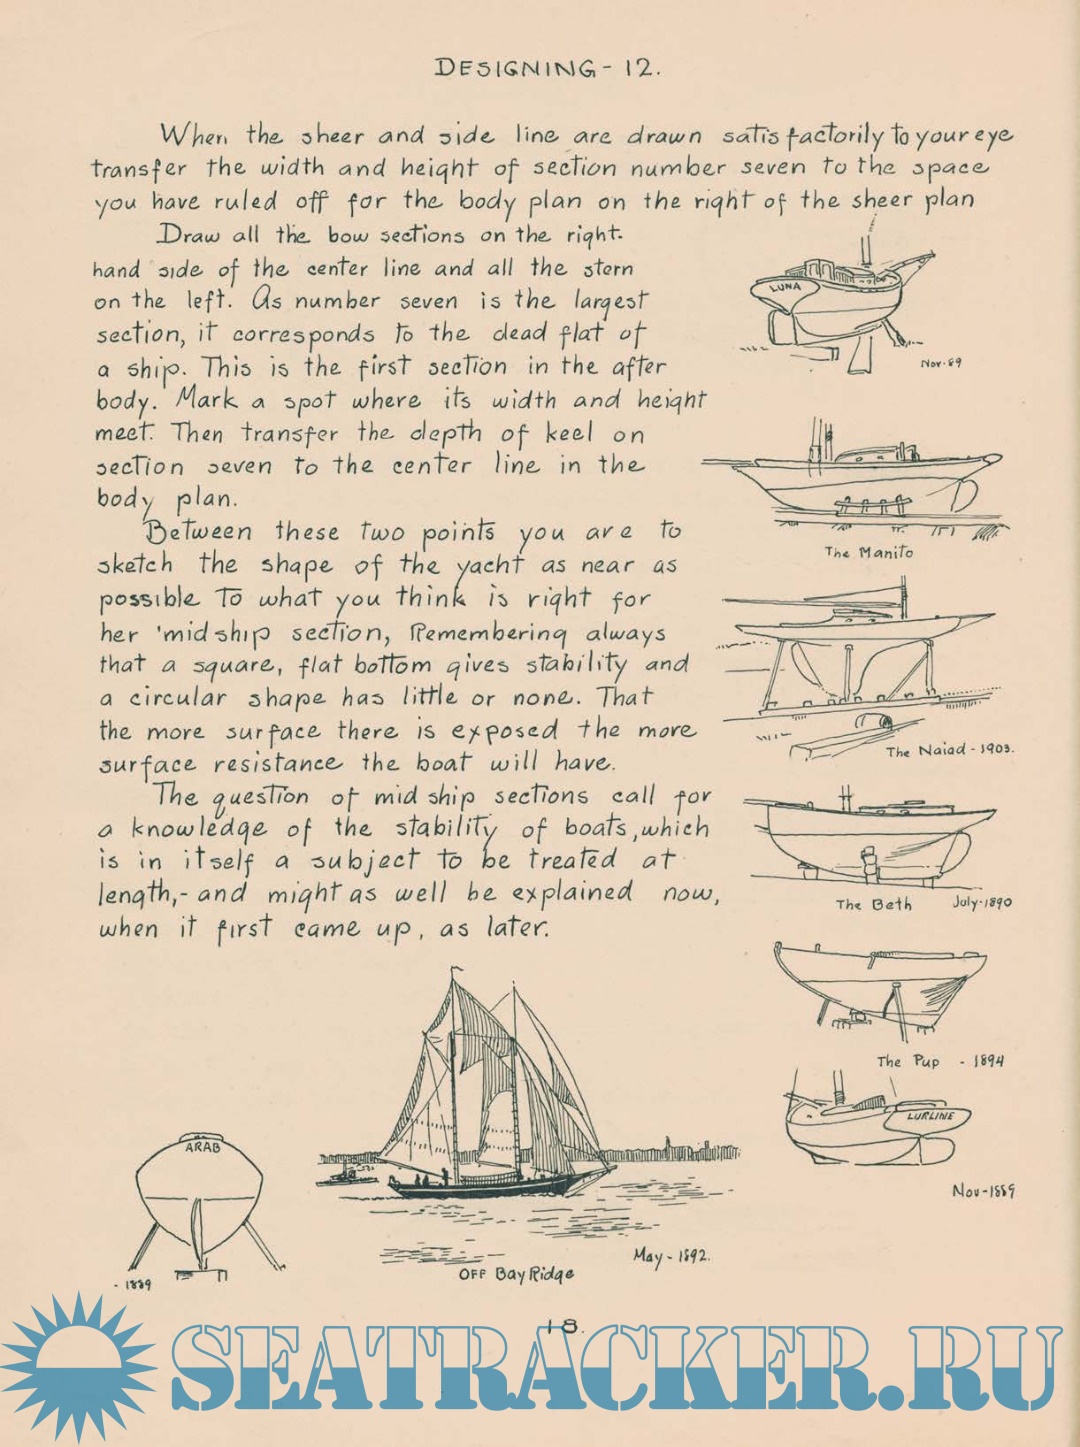 DESIGNING - 12.
When the sheer and side line are drawn satisfactorily to your eye
transfer the width and height of section number seven to the space
you have ruled off for the body plan on the right of the sheer plan
Draw all the bow sections on the right-
hand side of the center line and all the stern
on the left. As number seven is the largest
section, it corresponds to the dead flat of
a ship. This is the first section in the after
body. Mark a spot where its width and height
meet. Then transfer the depth of keel on
section seven to the center line in the
body plan.
Between these two points you are to
sketch the shape of the yacht as near as
possible to what you think is right for
her 'midship section, Remembering always
that a square, flat bottom gives stability and
a circular shape has little or none. That
the more surface there is exposed the more
surface resistance the boat will have.
The question of mid ship sections call for
a knowledge of the stability of boats, which
is in itself a subject to be treated at
length, - and might as well be explained now,
when it first came up, as later.
LUNA
Nov-89
The Manito
The Naiad - 1903.
The Beth July-1890
The Pup - 1894
LURLINE
Nov-1889
ARAB
- 1889
May - 1892.
OFF Bay Ridge
18.
SEATRACKER.RU